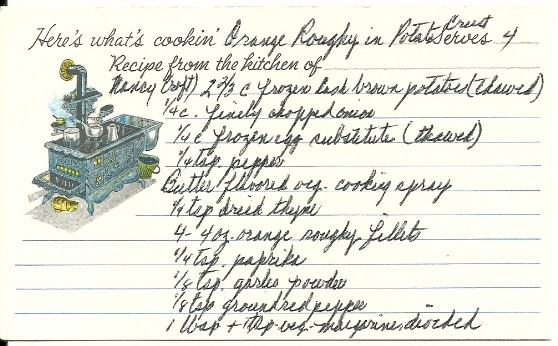 Here's what's cookin' Orange Roughy in Potato Crust Serves 4
Recipe from the kitchen of
(Nancy Croft) 2 2/3 c frozen hash brown potatoes (thawed)
1/4 c. finely chopped onion
1/4 c frozen egg substitute (thawed)
1/4 tsp. pepper
Butter flavored veg. cooking spray
1/4 tsp dried thyme
4- 4 oz. orange roughy fillets
1/4 tsp. paprika
1/8 tsp. garlic powder
1/8 tsp ground red pepper
1 tbsp + tsp. veg. margarine, divided